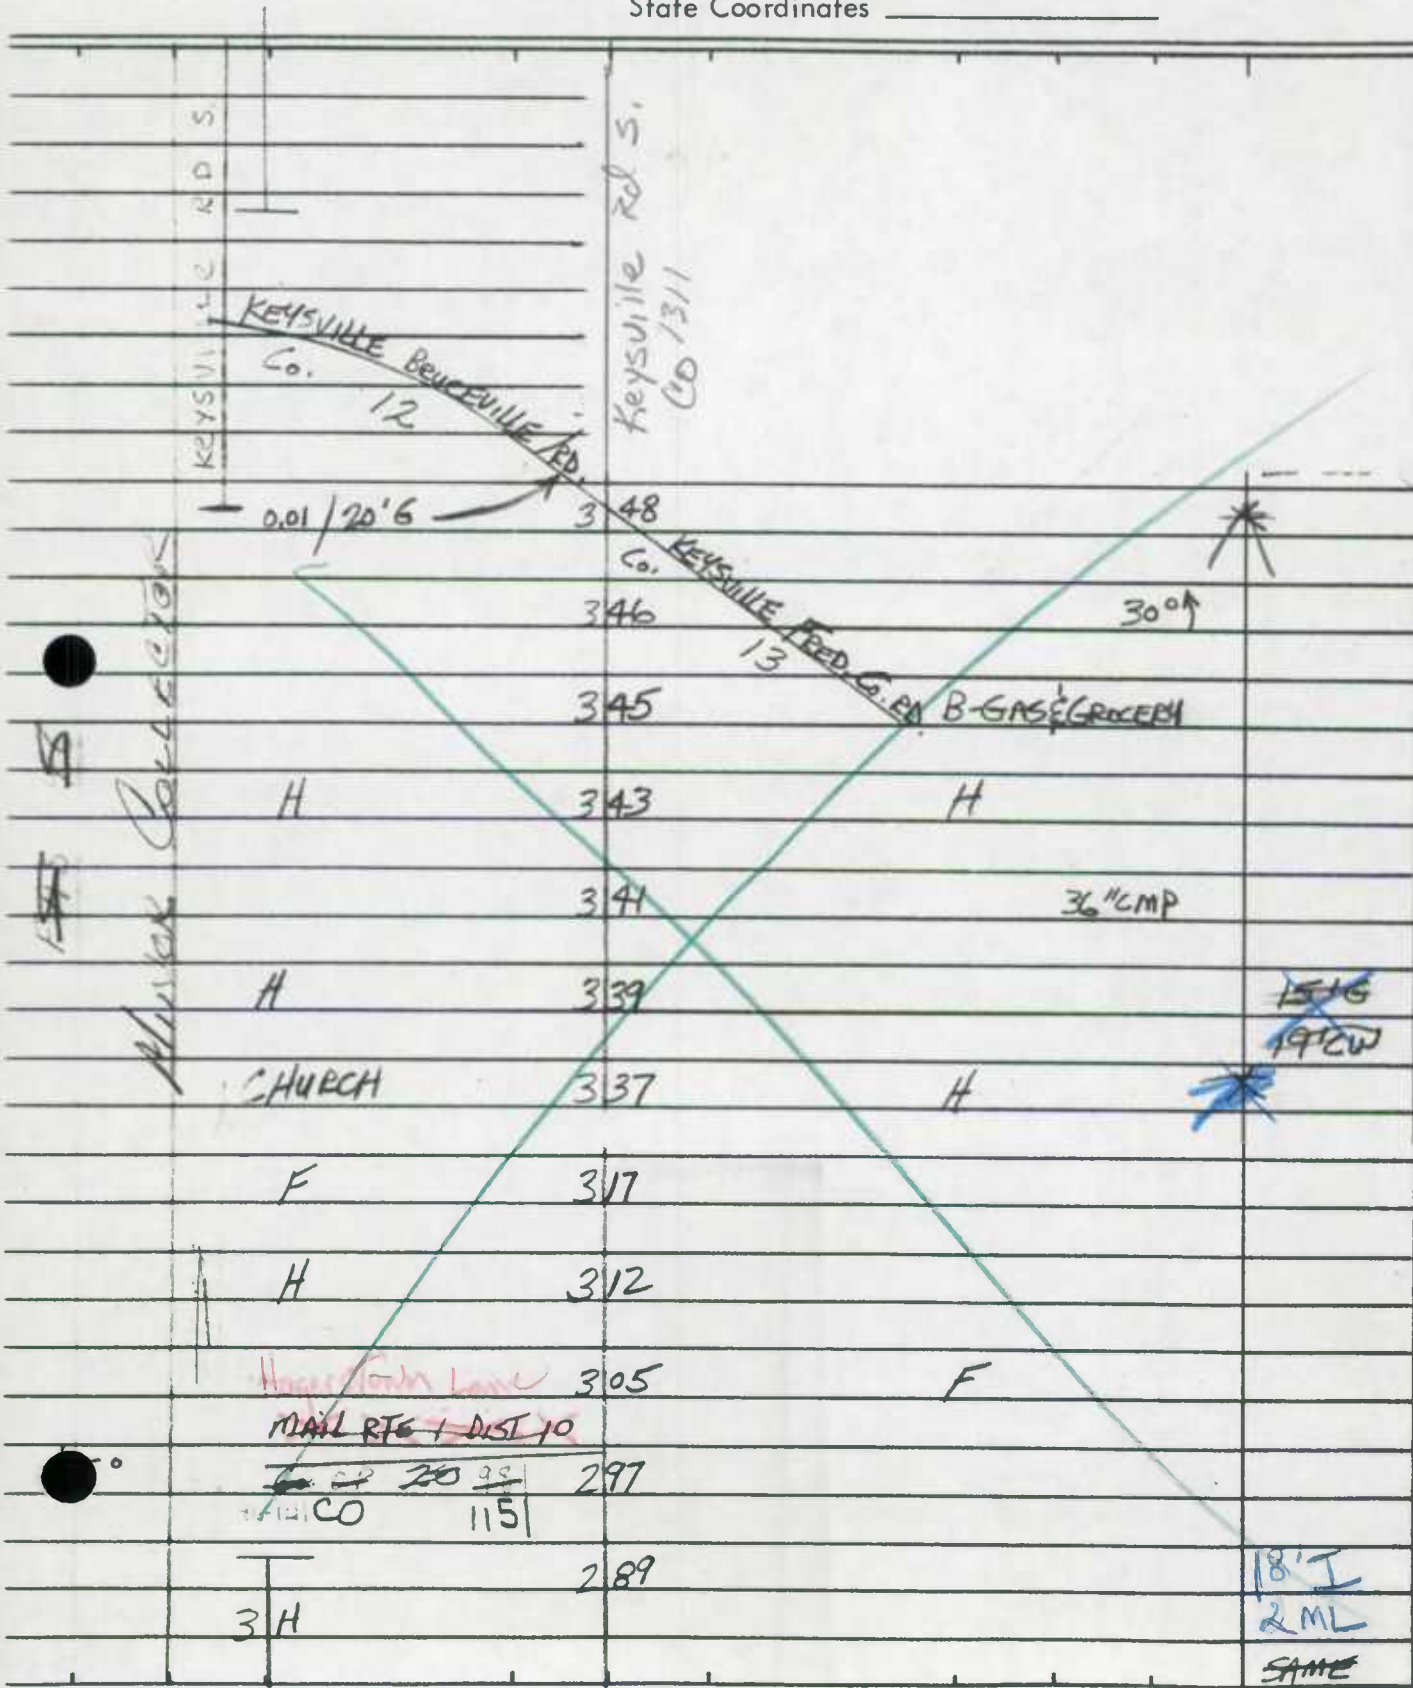 State Coordinates
KEYSVILLE RD S.
Keysville Rd S.
CO 1311
KEYSVILLE BRUCEVILLE RD.
Co.
12
0.01 / 20'G
3 48
Co.
KEYSVILLE FRED. Co. RD.
13
30°
3 46
3 45
B-GAS & GROCERY
MINOR COLLECTOR
H
3 43
H
3 41
36" CMP
H
3 39
15'G
19'CW
CHURCH
3 37
H
F
3 17
H
3 12
HagersTown Lane
3 05
F
MAIL RTE 1 DIST 10
20 98
2 97
CO 115
2 89
3 H
18' I
2 ML
SAME